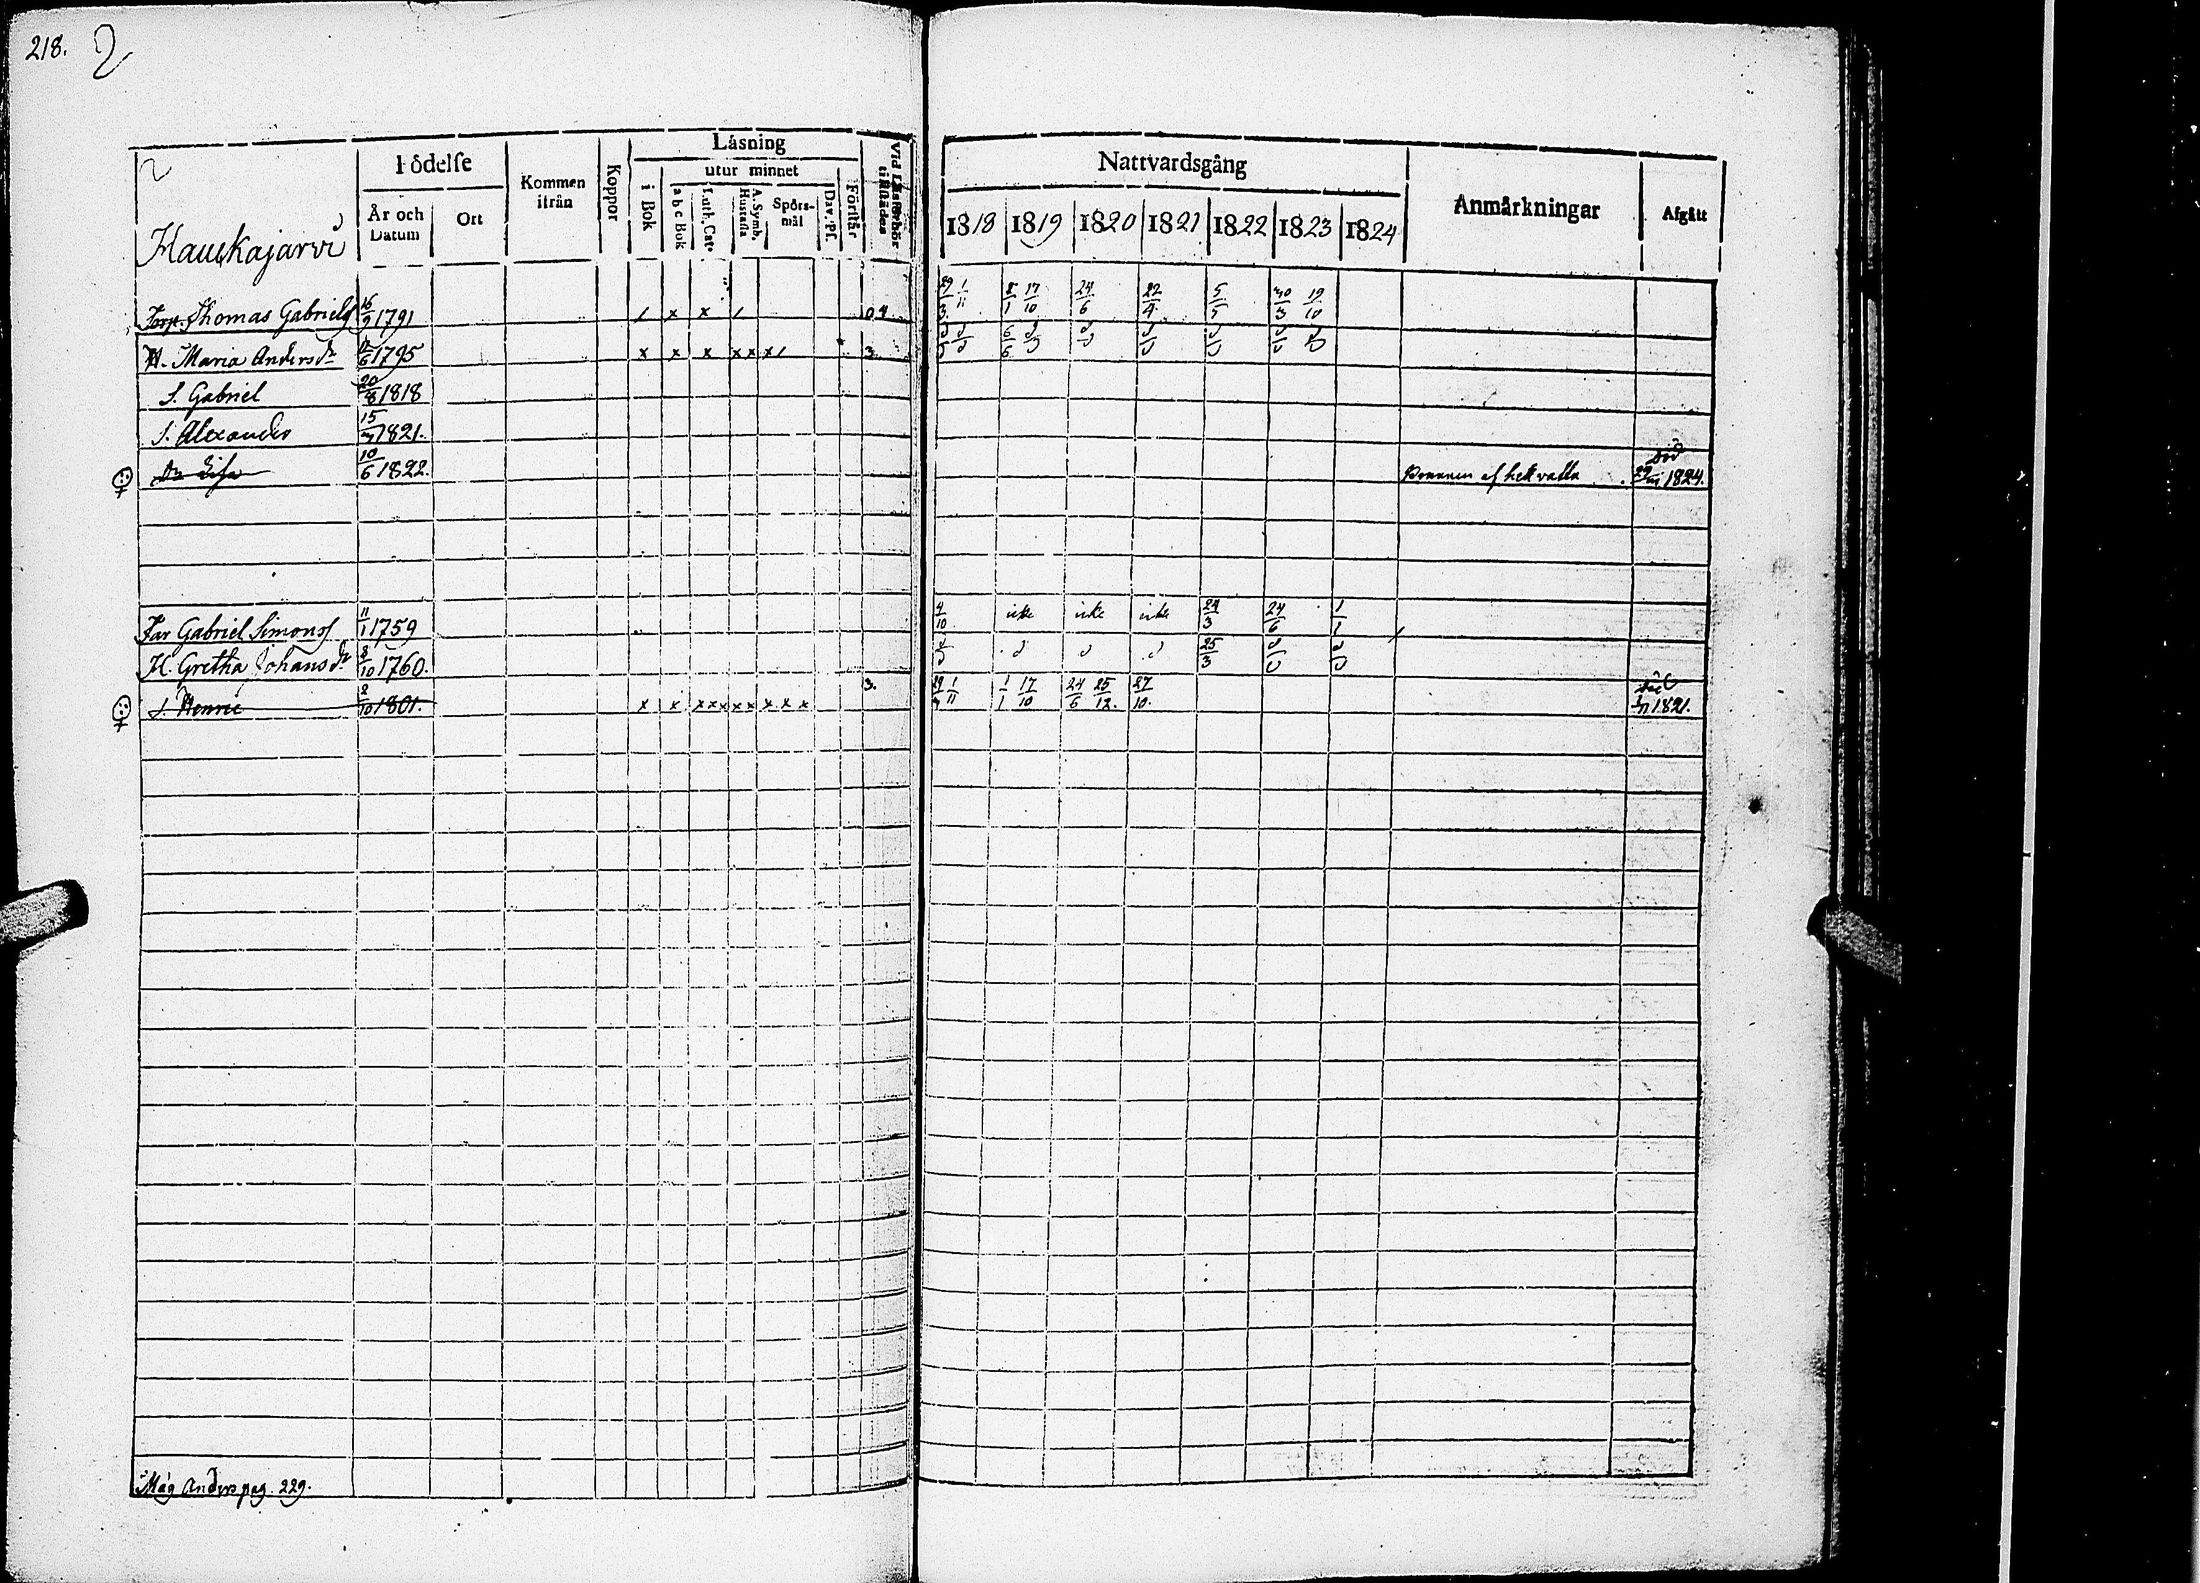 218. 2
2
Hauckajarvi
Födelse
År och Datum
Ort
Kommen ifrån
Koppor
Låsning
i Bok
utur minnet
a b c Bok
Luth. Cat.
A. Symb. Hustafla
Spörs-mål
Dav. Ps.
Förstår
Vid Läsförhör tillstädes
Nattvardsgång
1818 1819 1820 1821 1822 1823 1824
Anmårkningar
Afgått
Torp. Thomas Gabrielss 16/9 1791 / x x / 04 29/3 1/11 8/1 17/10 24/6 22/4 5/5 30/3 19/10
H. Maria Anders dr 1795 x x x x x x / 3
S. Gabriel 20/8 1818
S. Alexander 15/3 1821.
Dr Lisa 10/6 1822. af hett vatten död 1824.
Far Gabriel Simons 11/1 1759 4/10 icke icke icke 24/3 24/6 1/1
H. Gretha Johans dr 8/10 1760. 25/3
S. Henric 2/10 1801. x x x x x x x x x x 3. 29/3 1/11 1/1 17/10 24/6 25/12. 27/10. död 1821.
Måg Anders pag. 229.